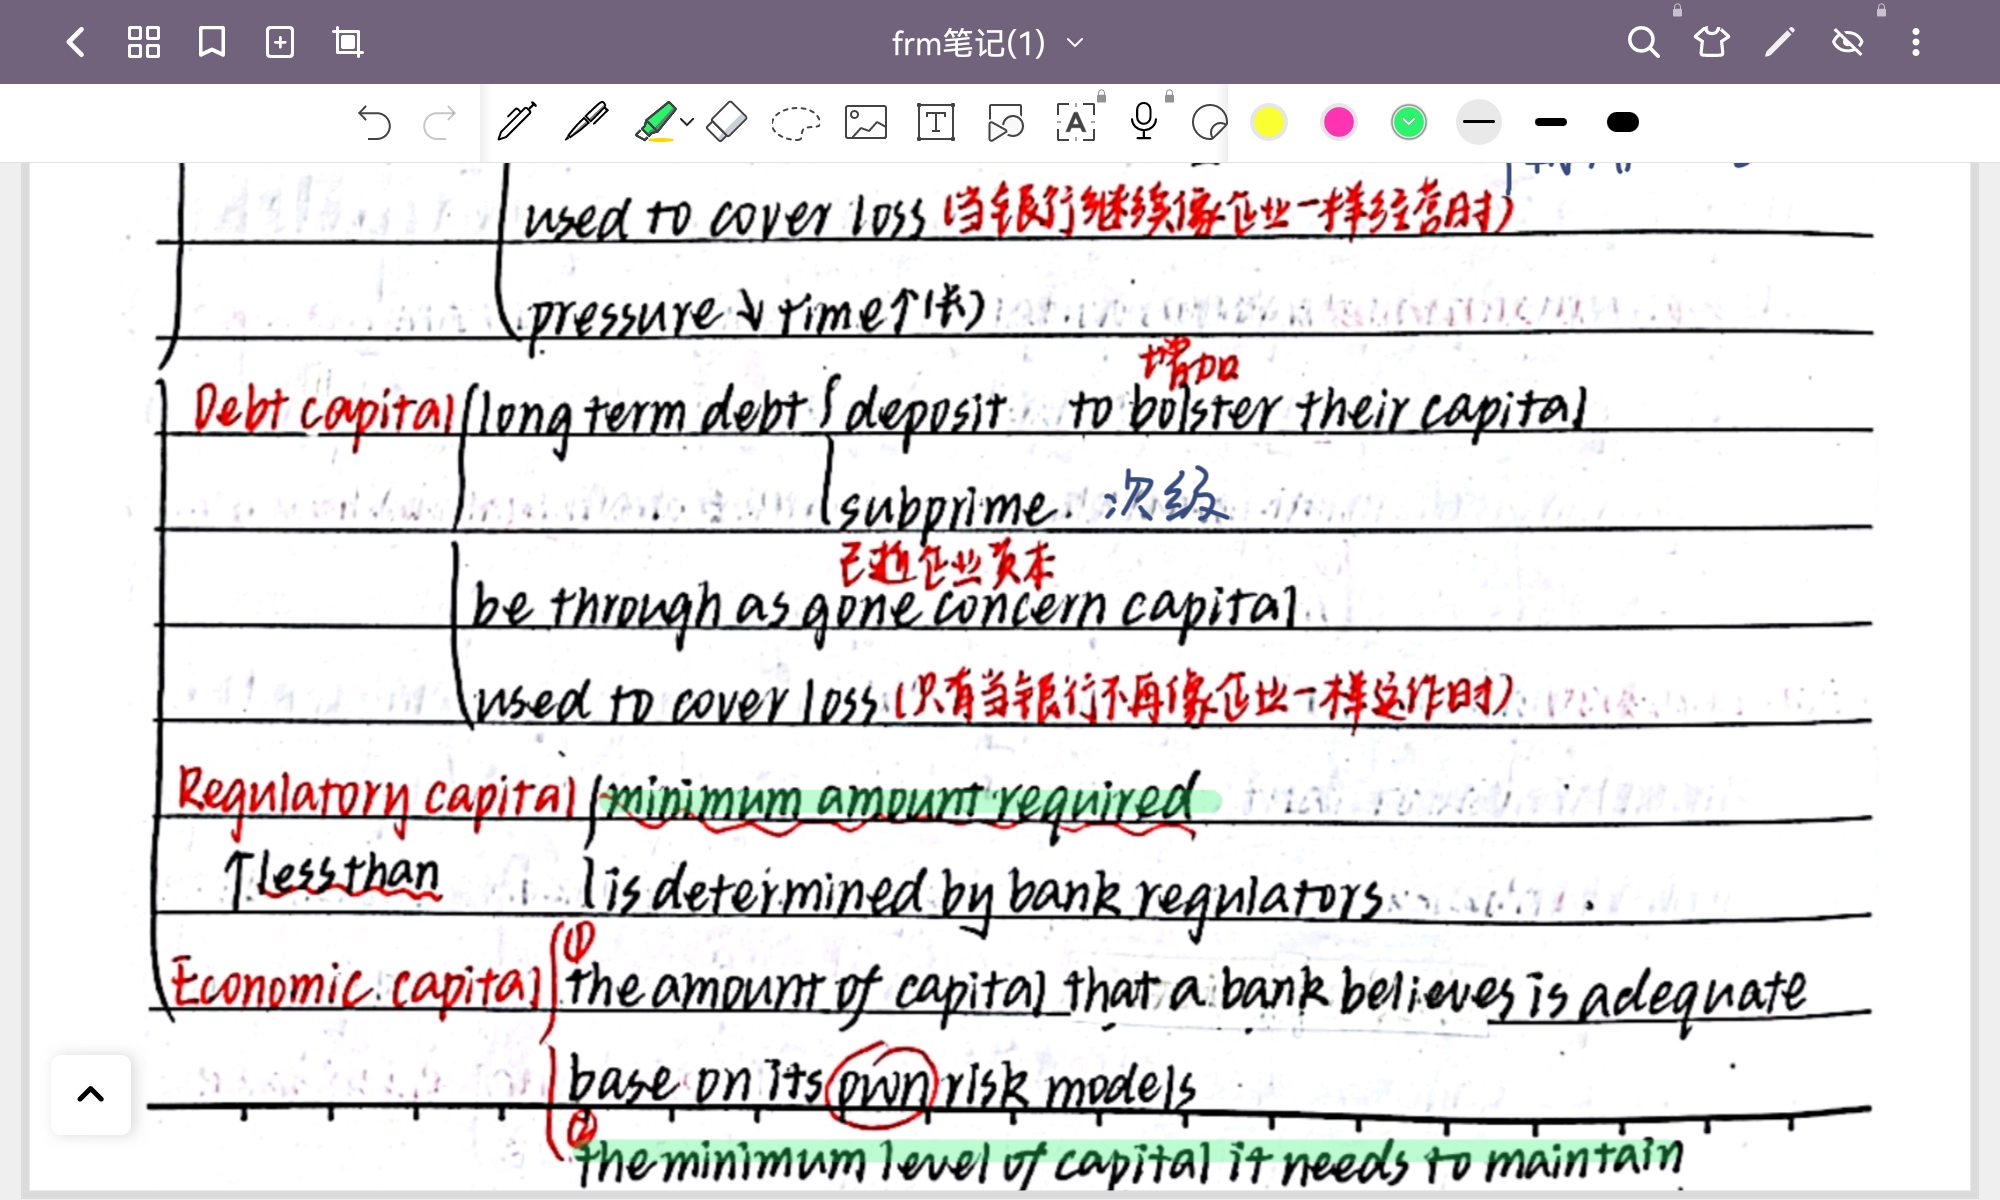 frm笔记(1)
used to cover loss (当银行继续像企业一样经营时)
pressure↓ time↑(长)
增加
Debt capital long term debt { deposit to bolster their capital
subprime. 次级
已逝企业资本
be through as gone concern capital
used to cover loss (只有当银行不再像企业一样运作时)
Regulatory capital minimum amount required
↑less than is determined by bank regulators
Economic capital ① the amount of capital that a bank believes is adequate
base on its own risk models
② the minimum level of capital it needs to maintain